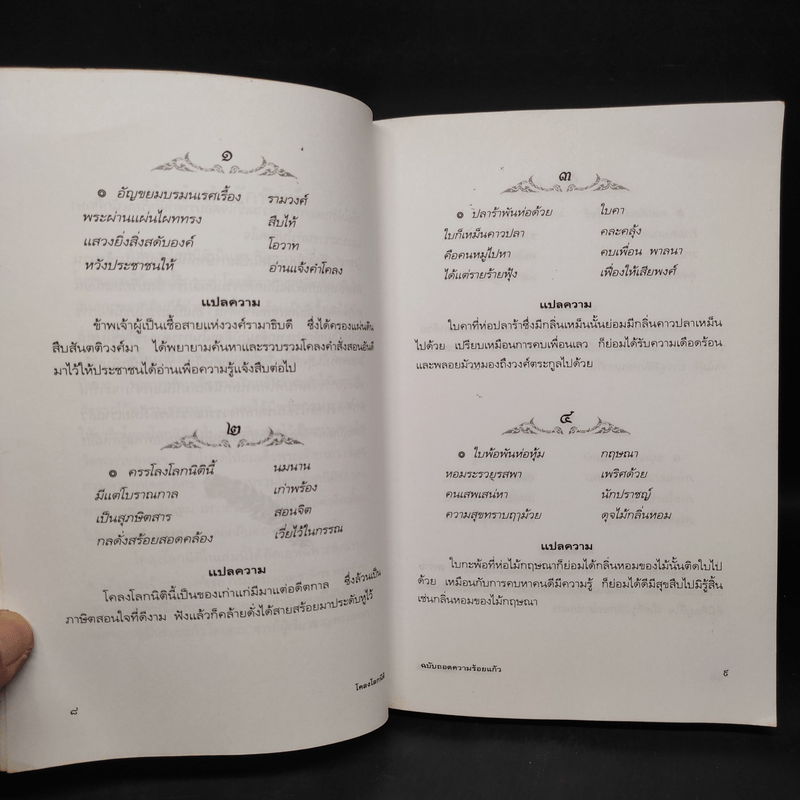 ๑
๏ อัญขยมบรมนเรศเรื้อง รามวงศ์
พระผ่านแผ่นไผททรง สืบไท้
แสวงยิ่งสิ่งสดับองค์ โอวาท
หวังประชาชนให้ อ่านแจ้งคำโคลง
แปลความ
ข้าพเจ้าผู้เป็นเชื้อสายแห่งวงศ์รามาธิบดี ซึ่งได้ครองแผ่นดิน
สืบสันตติวงศ์มา ได้พยายามค้นหาและรวบรวมโคลงคำสั่งสอนอันดี
มาไว้ให้ประชาชนได้อ่านเพื่อความรู้แจ้งสืบต่อไป
๒
๏ ครรโลงโลกนิตินี้ นมนาน
มีแต่โบราณกาล เก่าพร้อง
เป็นสุภษิตสาร สอนจิต
กลดั่งสร้อยสอดคล้อง เวี่ยไว้ในกรรณ
แปลความ
โคลงโลกนิตินี้เป็นของเก่าแก่มีมาแต่อดีตกาล ซึ่งล้วนเป็น
ภาษิตสอนใจที่ดีงาม ฟังแล้วก็คล้ายดั่งได้สายสร้อยมาประดับหูไว้
โคลงโลกนิติ
๘
๓
๏ ปลาร้าพันห่อด้วย ใบคา
ใบก็เหม็นคาวปลา คละคลุ้ง
คือคนหมู่ไปหา คบเพื่อน พาลนา
ได้แต่รายร้ายฟุ้ง เฟื่องให้เสียพงศ์
แปลความ
ใบคาที่ห่อปลาร้าซึ่งมีกลิ่นเหม็นนั้นย่อมมีกลิ่นคาวปลาเหม็น
ไปด้วย เปรียบเหมือนการคบเพื่อนเลว ก็ย่อมได้รับความเดือดร้อน
และพลอยมัวหมองถึงวงศ์ตระกูลไปด้วย
๔
๏ ใบพ้อพันห่อหุ้ม กฤษณา
หอมระรวยรสพา เพริศด้วย
คนเสพเสน่หา นักปราชญ์
ความสุขทราบฤาม้วย ดุจไม้กลิ่นหอม
แปลความ
ใบกะพ้อที่ห่อไม้กฤษณาก็ย่อมได้กลิ่นหอมของไม้นั้นติดใบไป
ด้วย เหมือนกับการคบหาคนดีมีความรู้ ก็ย่อมได้ดีมีสุขสืบไปมิรู้สิ้น
เช่นกลิ่นหอมของไม้กฤษณา
ฉบับถอดความร้อยแก้ว
๙